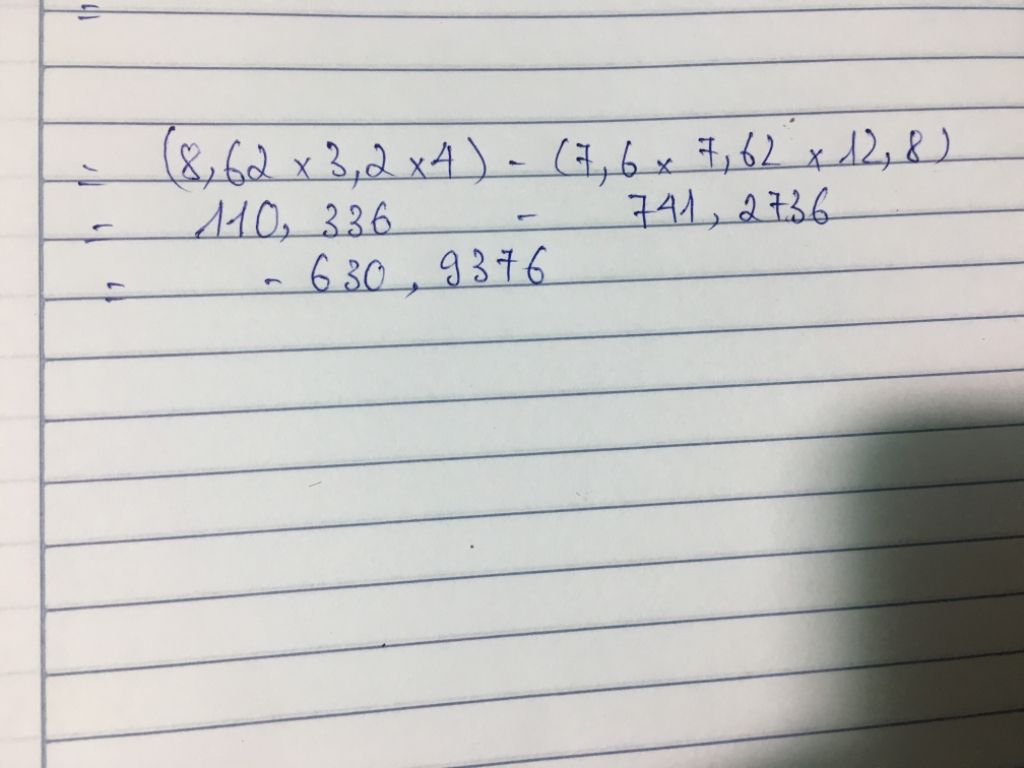 =
= (8,62 x 3,2 x 4) - (7,6 x 7,62 x 12,8)
= 110, 336 - 741, 2736
= - 630, 9376